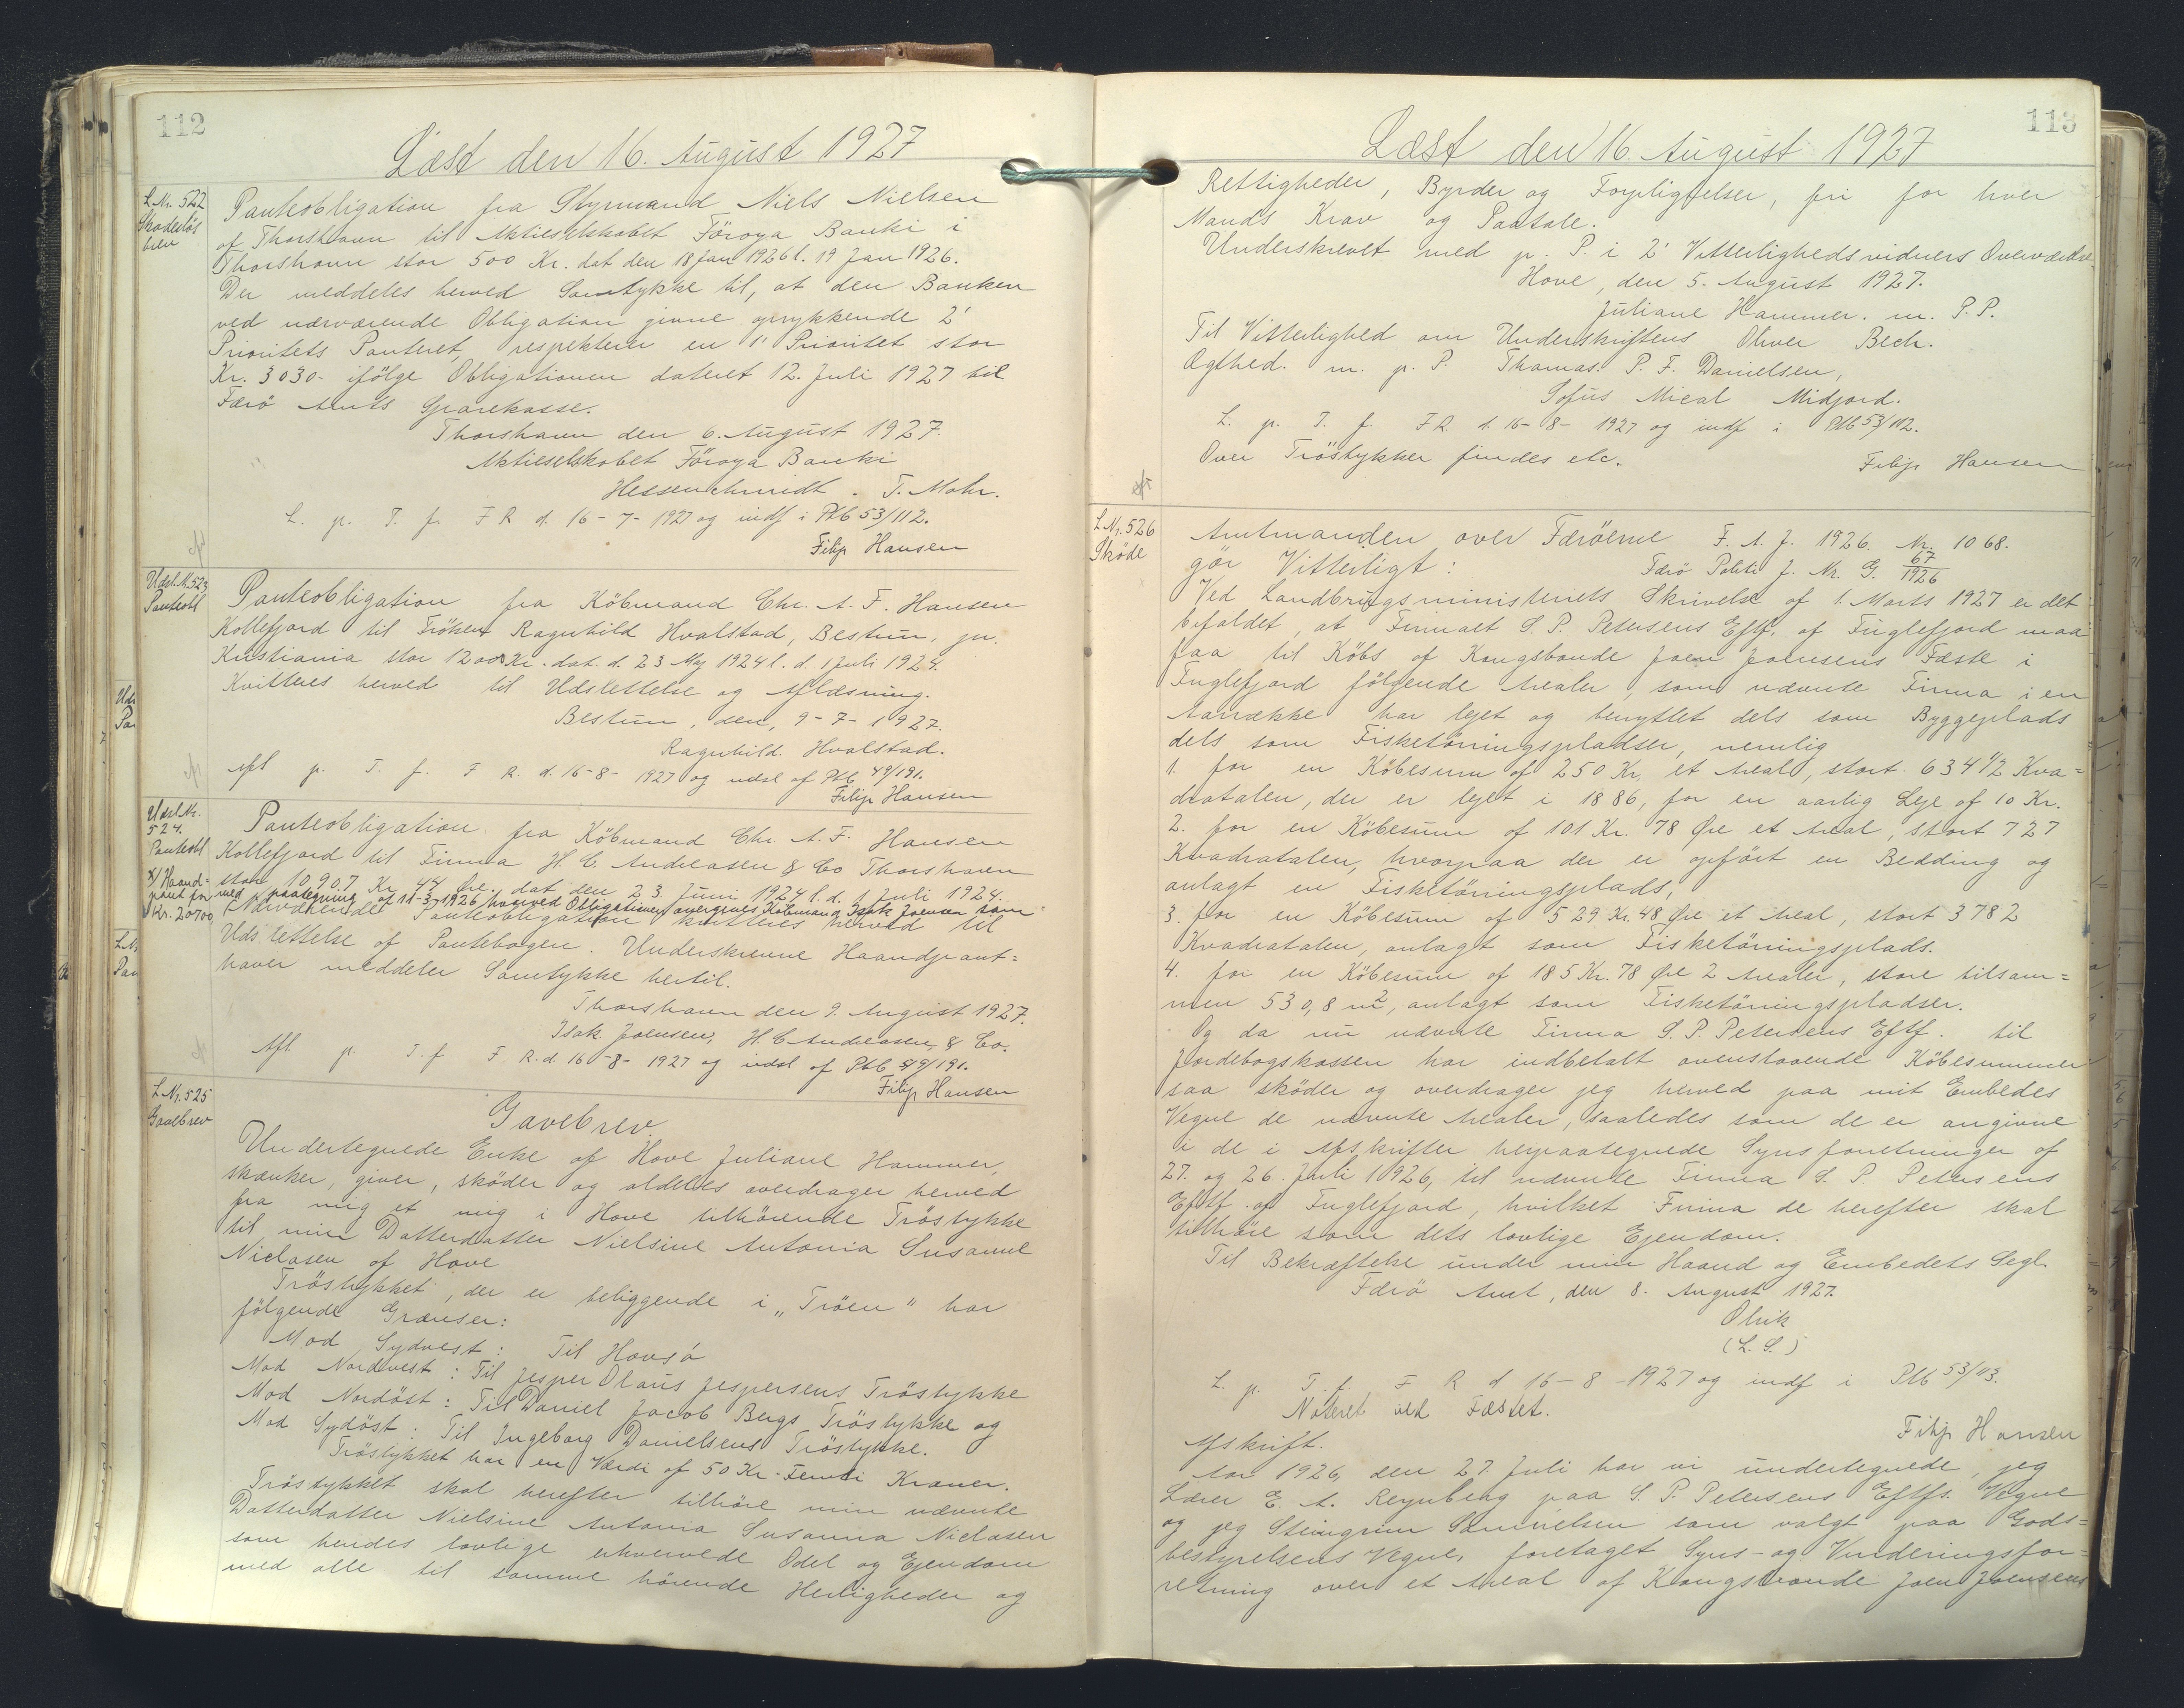 112
Læst den 16. August 1927
L. Nr. 522
Skadesløs
brev
Panteobligation fra Styrmand Niels Nielsen
af Thorshavn til Aktieselskabet Föroya Banki i
Thorshavn stor 500 Kr. dat den 18 Jan 1926 l. 19 Jan 1926.
Der meddeles herved Samtykke til, at den Banken
ved nærværende Obligation givne oprykkende 2'
Prioritets Panteret, respekterer en 1' Prioritet stor
Kr. 3030- ifölge Obligationen dateret 12. Juli 1927 til
Færö Amts Sparekasse.
Thorshavn den 6. August 1927.
Aktieselskabet Föroya Banki
Hessenschmidt . T. Mohr.
L. p. T. f. F R d. 16-7-1927 og indf i Ptb 53/112.
Filip Hansen
Udsl. Nr. 523
Panteobl
Panteobligation fra Köbmand Chr. A. F. Hansen
Kollefjord til Fröken Ragnhild Hvalstad, Bestun, pr.
Kristiania stor 12000 Kr. dat. d. 23 Maj 1924 l. d. 1 Juli 1924.
Kvitteres herved til Udslettelse og Aflæsning.
Bestun, den, 9-7-1927.
Ragnhild. Hvalstad.
Afl p. T. f. F R. d. 16-8-1927 og udsl af Ptb 49/191.
Filip Hansen
Udsl. Nr.
524.
Panteobl
x/ Haand=
pant for
Kr. 20700
Panteobligation fra Köbmand Chr. A. F. Hansen
Kollefjord til Firma H. C. Andreasen & Co Thorshavn
stor 10907 Kr 44 Øre. dat den 23 Juni 1924 l. d. 1 Juli 1924.
med paategning af 11-3-1926 hvorved Obligationen overgives Köbmand Isak Joensen som
Nærværende Panteobligation kvitteres herved til
Udslettelse af Pantebogen. Underskrevne Haandpant=
haver meddeler Samtykke hertil.
Thorshavn den 9. August 1927.
Isak Joensen, H. C Andreasen & Co.
Afl. p. T. f. F R. d 16-8-1927 og udsl af Ptb 49/191.
Filip Hansen
L Nr. 525
Gavebrev
Gavebrev.
Undertegnede Enke af Hove Juliane Hammer,
skænker, giver, sköder og aldeles overdrager herved
fra mig et mig i Hove tilhörende Tröstykke
til min Datterdatter Nielsine Antonia Susanne
Niclasen af Hove
Tröstykket, der er beliggende i „Tröen" har
fölgende Grænser:
Mod Sydvest: Til Hovsá
Mod Nordvest: Til Jesper Olaus Jespersens Tröstykke
Mod Nordöst: Til Daniel Jacob Bergs Tröstykke og
Mod Sydöst: Til Ingeborg Danielsens Tröstykke.
Tröstykket har en Værdi af 50 Kr. Femti Kroner.
Tröstykket skal herefter tilhöre min nævnte
Datterdatter Nielsine Antonia Susanna Niclasen
som hendes lovlige erhvervede Odel og Ejendom
med alle til samme hörende Herligheder og
113
Læst den 16. August 1927
Rettigheder, Byrder og Forpligtelser, fri for hver
Mands Krav og Paatale.
Underskrevet med p. P. i 2' Vitterlighedsvidners Overværelse
Hove, den 5. August 1927.
Juliane Hammer. m. P. P.
Til Vitterlighed om Underskriftens Oliver Bech.
Ægthed. m. p. P. Thomas. P. F. Danielsen,
Sofus Mical Midjord.
L. p. T. f. F R. d. 16-8-1927 og indf i Ptb 53/112.
Over Tröstykker findes etc.
Filip Hansen
L Nr. 526
Sköde
Amtmanden over Færöerne F. A. J. 1926. Nr. 1068.
gör Vitterligt: Færö Politi J. Nr. G. 67/1926
Ved Landbrugsministeriets Skrivelse af 1. Marts 1927 er det
befaldet, at Firmaet S. P. Petersens Eftf. af Fuglefjord maa
faa til Köbs af Kongsbonde Joen Joensens Fæste i
Fuglefjord fölgende Arealer, som nævnte Firma i en
Aarrække har lejet og benyttet dels som Byggeplads
dels som Fisketöringspladser, nemlig
1. for en Köbesum af 250 Kr, et Areal, stort. 634 1/2 Kva=
dratalen, der er lejet i 1886, for en aarlig Leje af 10 Kr.
2. for en Köbesum af 101 Kr. 78 Øre et Areal, stort 727
Kvadratalen, hvorpaa der er opfört en Bedding og
anlagt en Fisketöringsplads,
3. for en Köbesum af 529 Kr. 48 Øre et Areal, stort 3782
Kvadratalen, anlagt som Fisketöringsplads.
4. for en Köbesum af 185 Kr. 78 Øre 2 Arealer, store tilsam=
men 530,8 m2, anlagt som Fisketöringspladser.
Og da nu nævnte Firma S. P. Petersens Eftf. til
Jordebogskassen har indbetalt ovenstaaende Köbesummer
saa sköder og overdrager jeg herved paa mit Embedes
Vegne de nævnte Arealer, saaledes som de er angivne
i de i Afskrifter herpaategnede Synsforretninger af
27. og 26. Juli 1926, til nævnte Firma S. P. Petersens
Eftf. af Fuglefjord, hvilket Firma de herefter skal
tilhöre som dets lovlige Ejendom.
Til Bekræftelse under min Haand og Embedets Segl.
Færö Amt, den 8. August 1927.
Olrik
(L. S.)
L. p. T. f. F R d 16-8-1927 og indf i Ptb 53/113.
Noteret ved Fæstet.
Filip Hansen
Afskrift.
Aar 1926, den 27. Juli har vi undertegnede, jeg
Lærer E. A. Reynberg paa S. P. Petersens Eftfs. Vegne
og jeg Steingrim Samuelsen som valgt paa Gods=
bestyrelsens Vegne, foretaget Syns- og Vurderingsfor=
retning over et Areal af Kongsbonde Joen Joensens